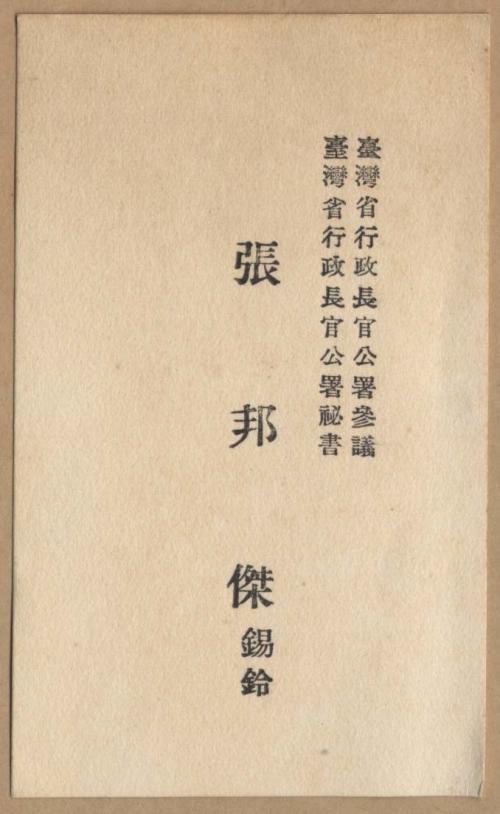 臺灣省行政長官公署參議
臺灣省行政長官公署祕書
張邦傑
錫鈴